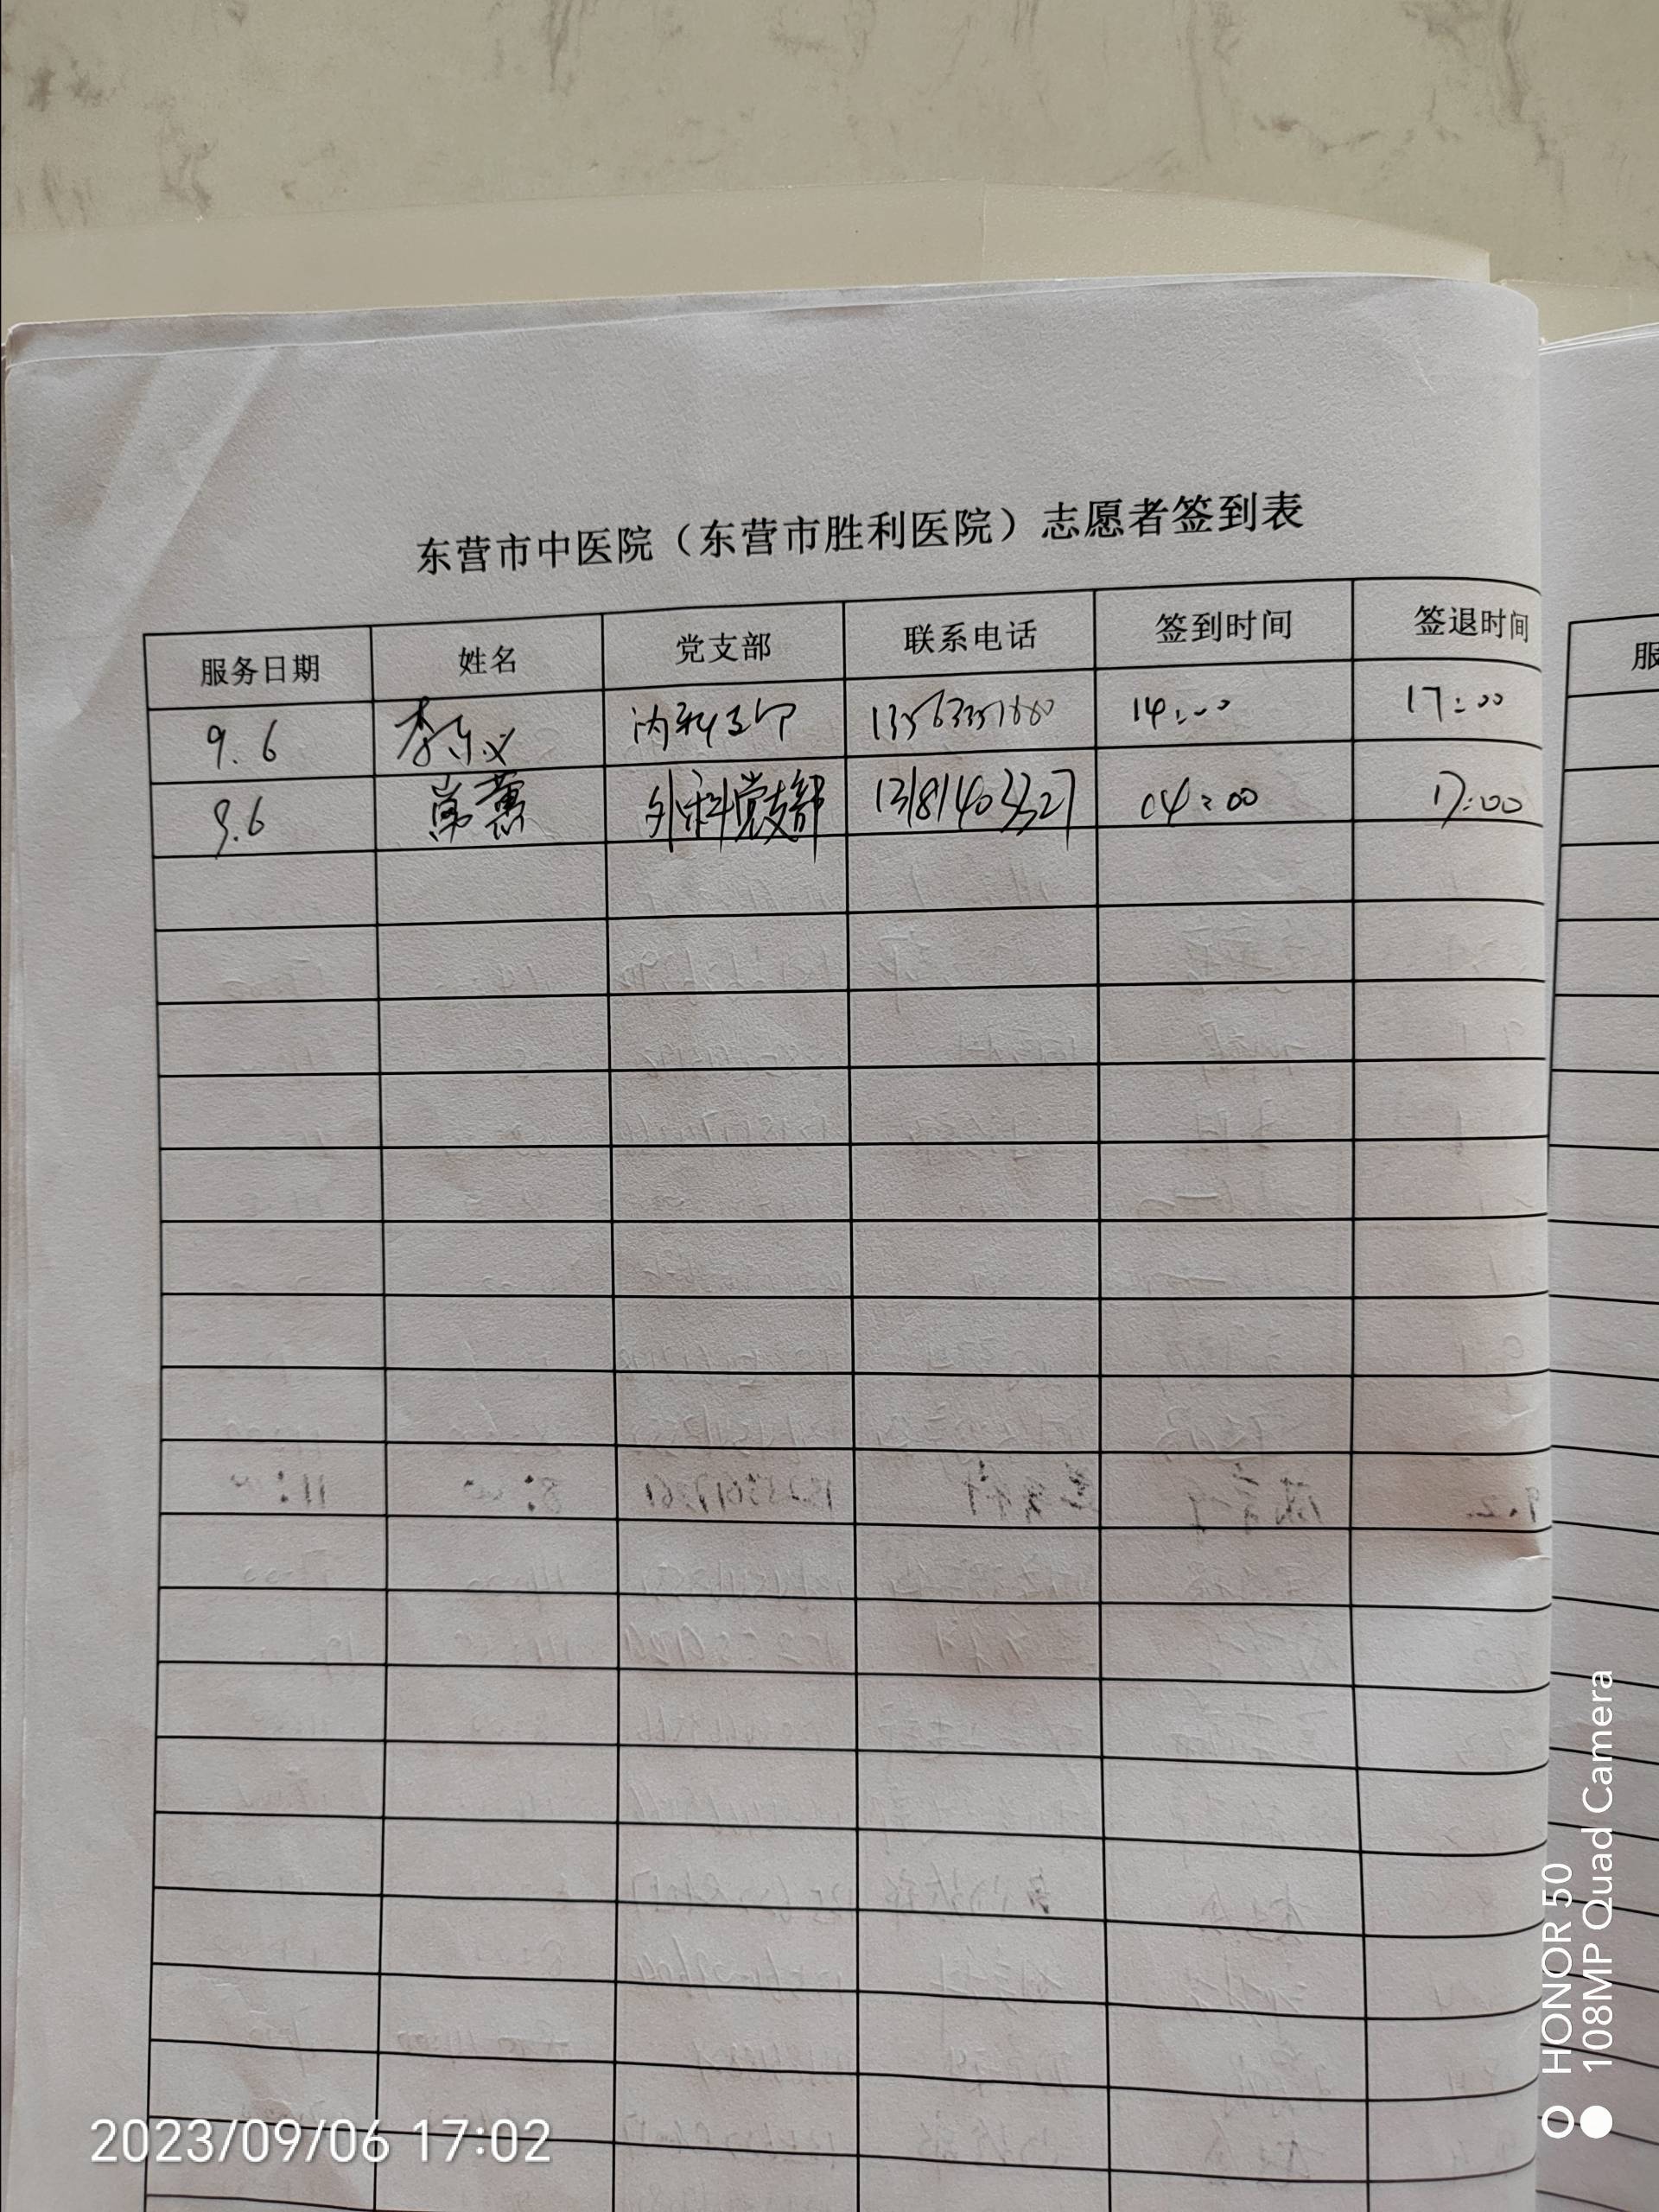 东营市中医院（东营市胜利医院）志愿者签到表
服务日期 姓名 党支部 联系电话 签到时间 签退时间
9.6 李 内科支部 14:00 17:00
9.6 常蕙 外科党支部 13181403327 14:00 17:00
服
HONOR 50
108MP Quad Camera
2023/09/06 17:02